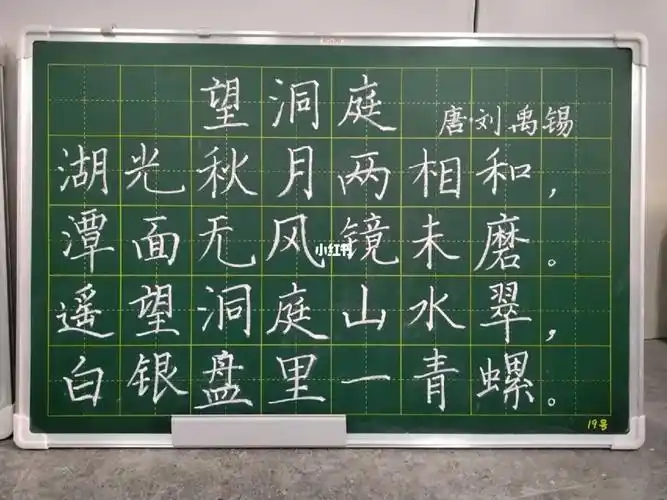 望洞庭
唐·刘禹锡
湖光秋月两相和，
潭面无风镜未磨。
遥望洞庭山水翠，
白银盘里一青螺。
小红书
19号